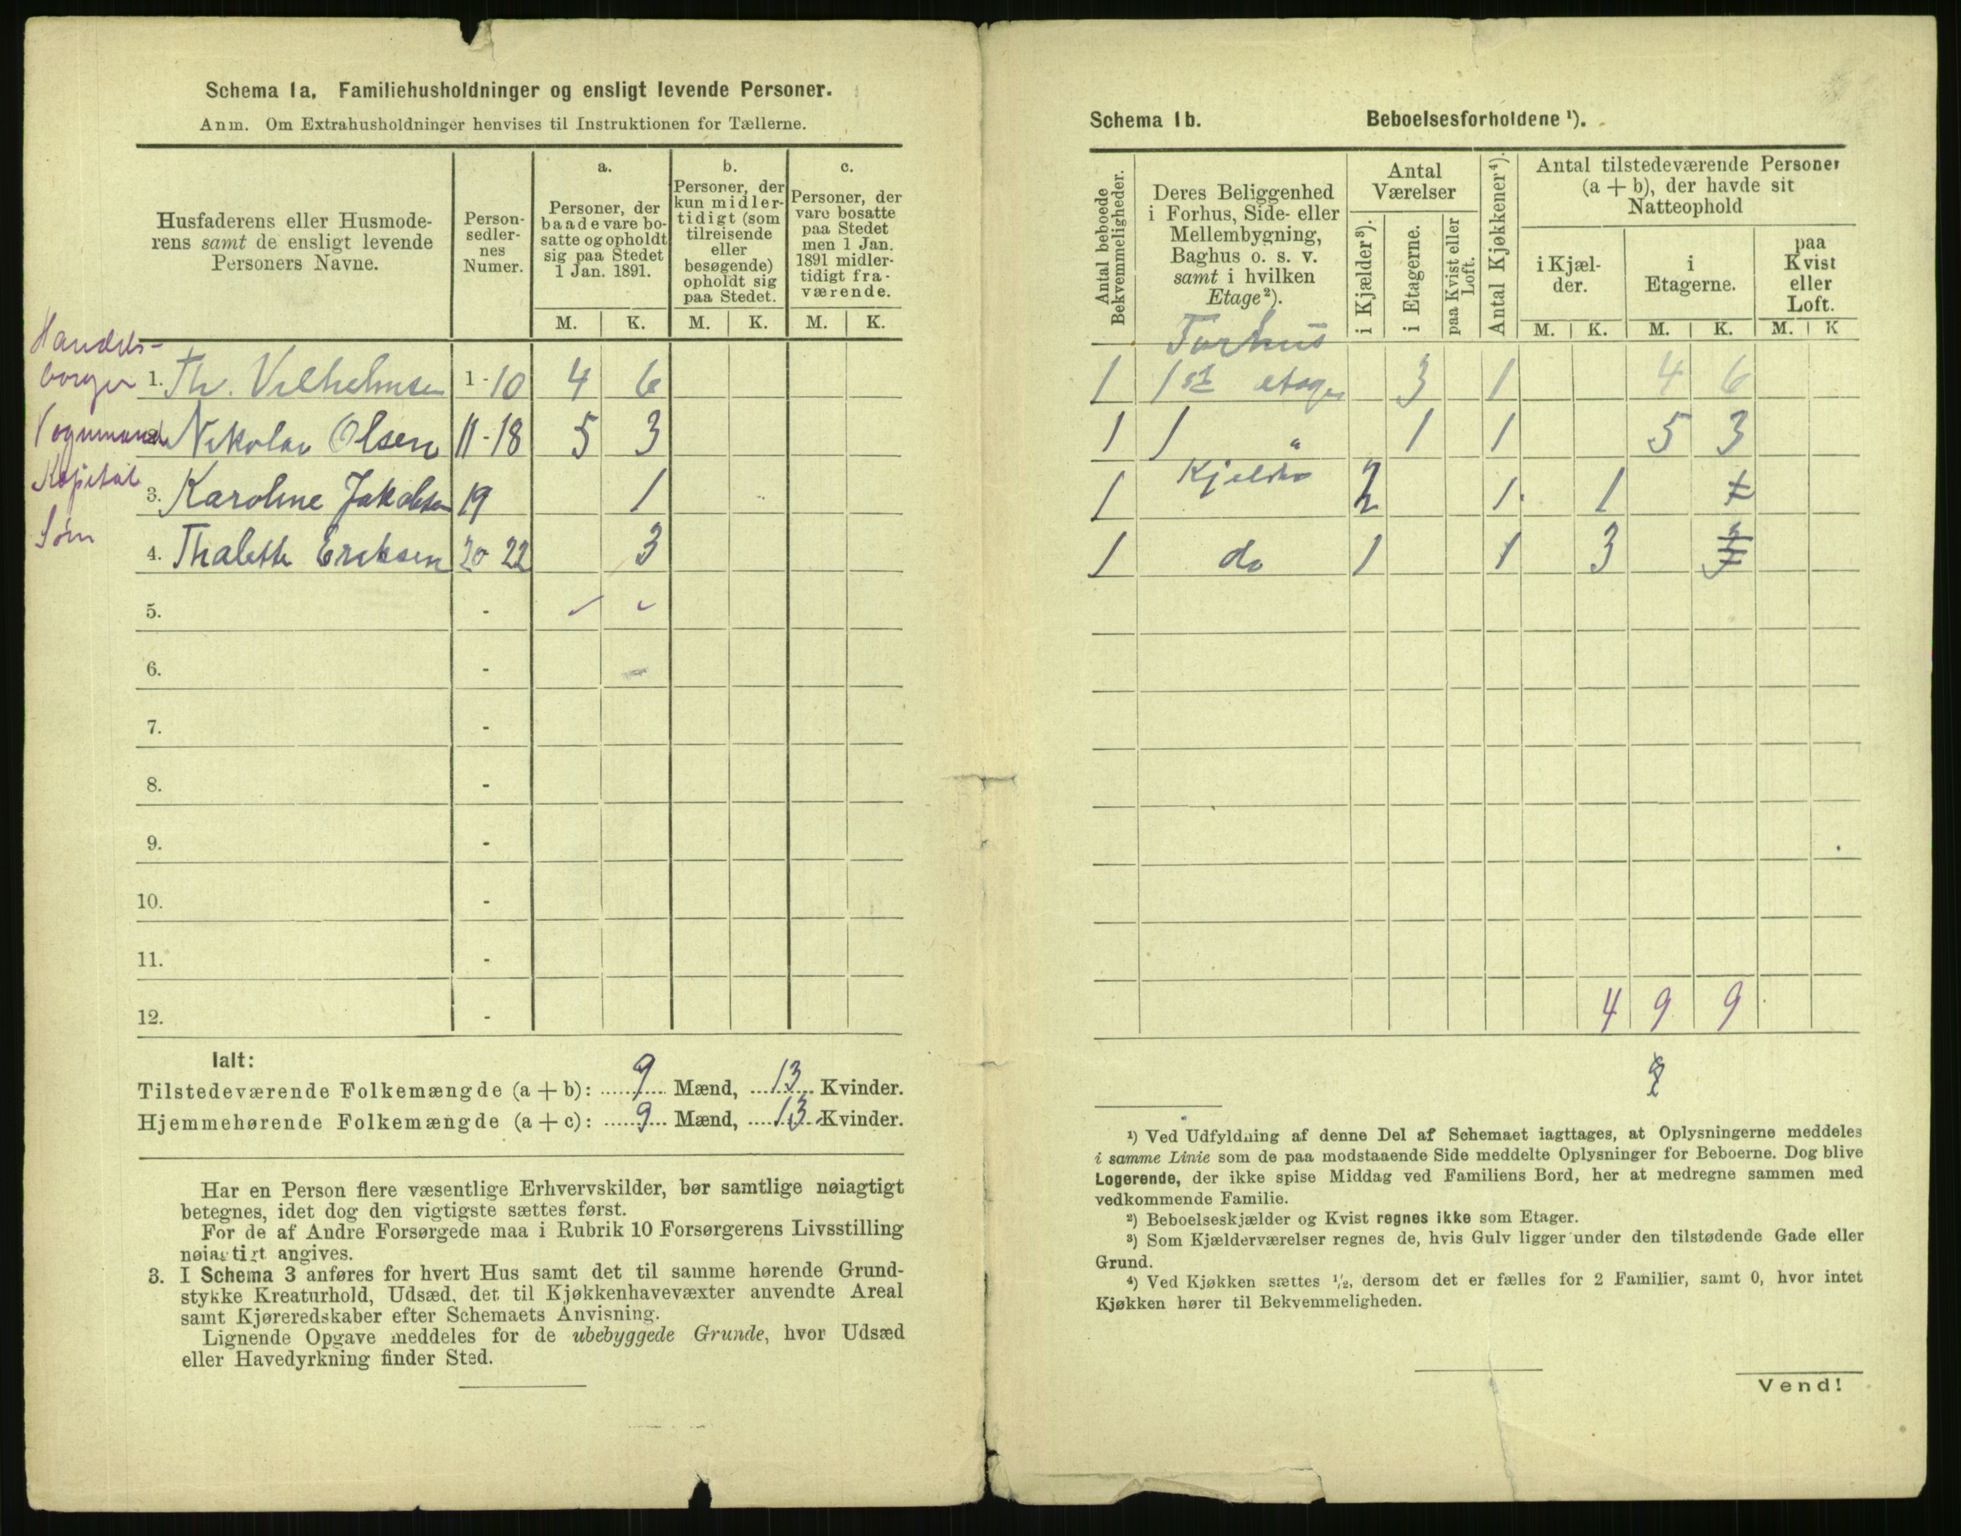 Schema 1a. Familiehusholdninger og ensligt levende Personer.
Anm. Om Extrahusholdninger henvises til Instruktionen for Tællerne.
Husfaderens eller Husmode-
rens samt de ensligt levende
Personers Navne.
Person-
sedler-
nes
Numer.
a.
Personer, der
baade vare bo-
satte og opholdt
sig paa Stedet
1 Jan. 1891.
b.
Personer, der
kun midler-
tidigt (som
tilreisende
eller
besøgende)
opholdt sig
paa Stedet.
c.
Personer, der
vare bosatte
paa Stedet
men 1 Jan.
1891 midler-
tidigt fra-
værende.
M. K. M. K. M. K.
Handels-
borger 1. Th. Vilhelmsen 1-10 4 6
Vognmand 2. Nikolai Olsen 11-18 5 3
Kapital 3. Karoline Jakobsen 19 1
4. Thalette Eriksen 20-22 3
5. -
6. -
7. -
8. -
9. -
10. -
11. -
12. -
Ialt:
Tilstedeværende Folkemængde (a + b): 9 Mænd, 13 Kvinder.
Hjemmehørende Folkemængde (a + c): 9 Mænd, 13 Kvinder.
Har en Person flere væsentlige Erhvervskilder, bør samtlige nøiagtigt
betegnes, idet dog den vigtigste sættes først.
For de af Andre Forsørgede maa i Rubrik 10 Forsørgerens Livsstilling
nøiagtigt angives.
3. I Schema 3 anføres for hvert Hus samt det til samme hørende Grund-
stykke Kreaturhold, Udsæd, det til Kjøkkenhavevæxter anvendte Areal
samt Kjøreredskaber efter Schemaets Anvisning.
Lignende Opgave meddeles for de ubebyggede Grunde, hvor Udsæd
eller Havedyrkning finder Sted.
Schema 1b. Beboelsesforholdene ¹).
Antal beboede
Bekvemmeligheder.
Deres Beliggenhed
i Forhus, Side- eller
Mellembygning,
Baghus o. s. v.
samt i hvilken
Etage²).
Antal
Værelser
i Kjælder³).
i Etagerne.
paa Kvist eller
Loft.
Antal Kjøkkener⁴).
Antal tilstedeværende Personer
(a + b), der havde sit
Natteophold
i Kjæl-
der.
i
Etagerne.
paa
Kvist
eller
Loft.
M. K. M. K. M. K
Forhus
1 1st etage 3 1 4 6
1 1 " 1 1 5 3
1 Kjelder 2 1 1 1
1 do 1 1 3 3
4 9 9
¹) Ved Udfyldning af denne Del af Schemaet iagttages, at Oplysningerne meddeles
i samme Linie som de paa modstaaende Side meddelte Oplysninger for Beboerne. Dog blive
Logerende, der ikke spise Middag ved Familiens Bord, her at medregne sammen med
vedkommende Familie.
²) Beboelseskjælder og Kvist regnes ikke som Etager.
³) Som Kjælderværelser regnes de, hvis Gulv ligger under den tilstødende Gade eller
Grund.
⁴) Ved Kjøkken sættes ½, dersom det er fælles for 2 Familier, samt 0, hvor intet
Kjøkken hører til Bekvemmeligheden.
Vend!